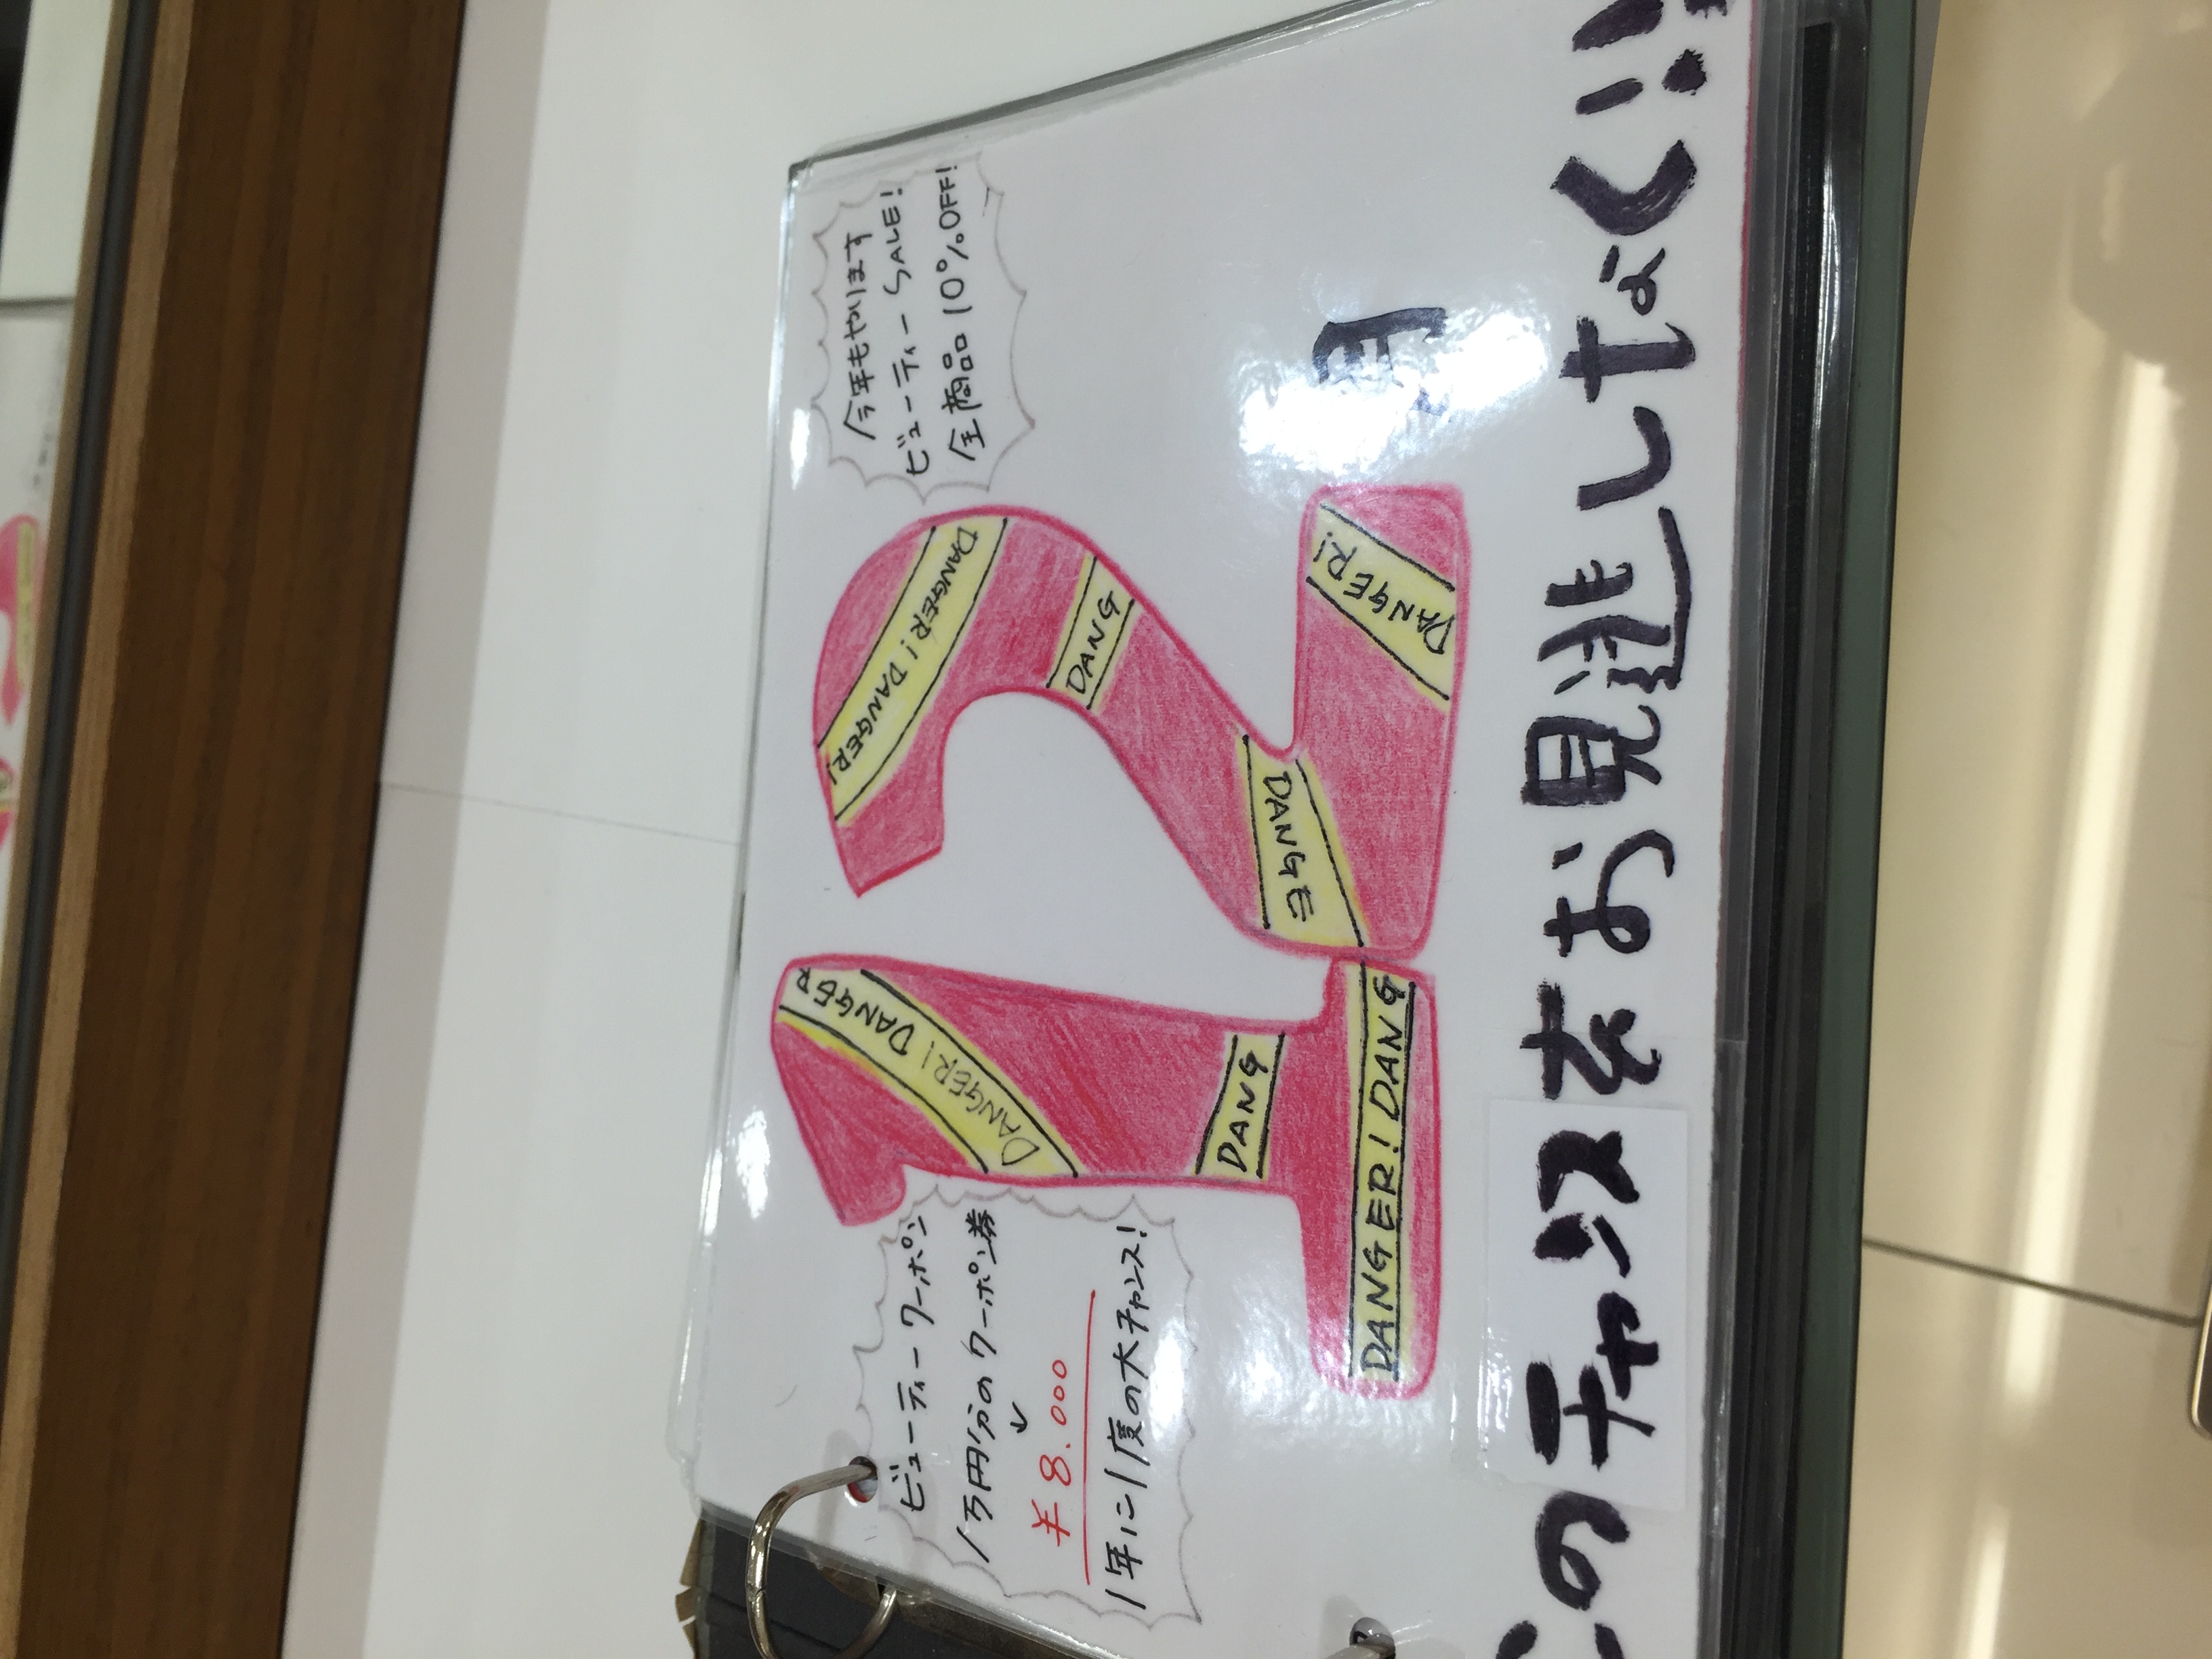 ビューティークーポン
1万円分のクーポン券
↓
¥8.000
1年に1度の大チャンス!
今年もやります
ビューティー SALE!
全商品10%OFF!
12月
DANGER! DANGER! DANGER
DANG
DANGER! DANG
DANGER! DANGER!
DANG
DANGE
DANGER!
このチャンスをお見逃しなく!!